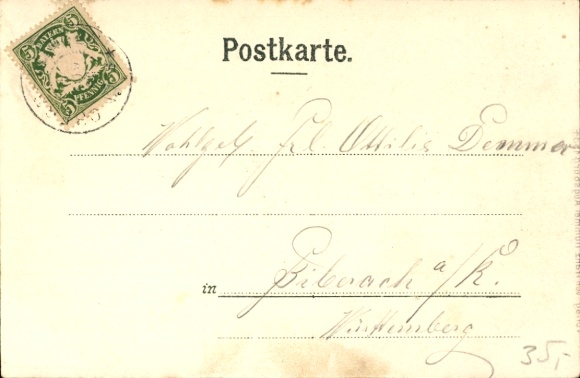 BAYERN
5 5
PFENNIG
5 5
Postkarte.
Wohlgeb. Frl. Ottilie Demmer
in Biberach a/R.
Württemberg
35,-